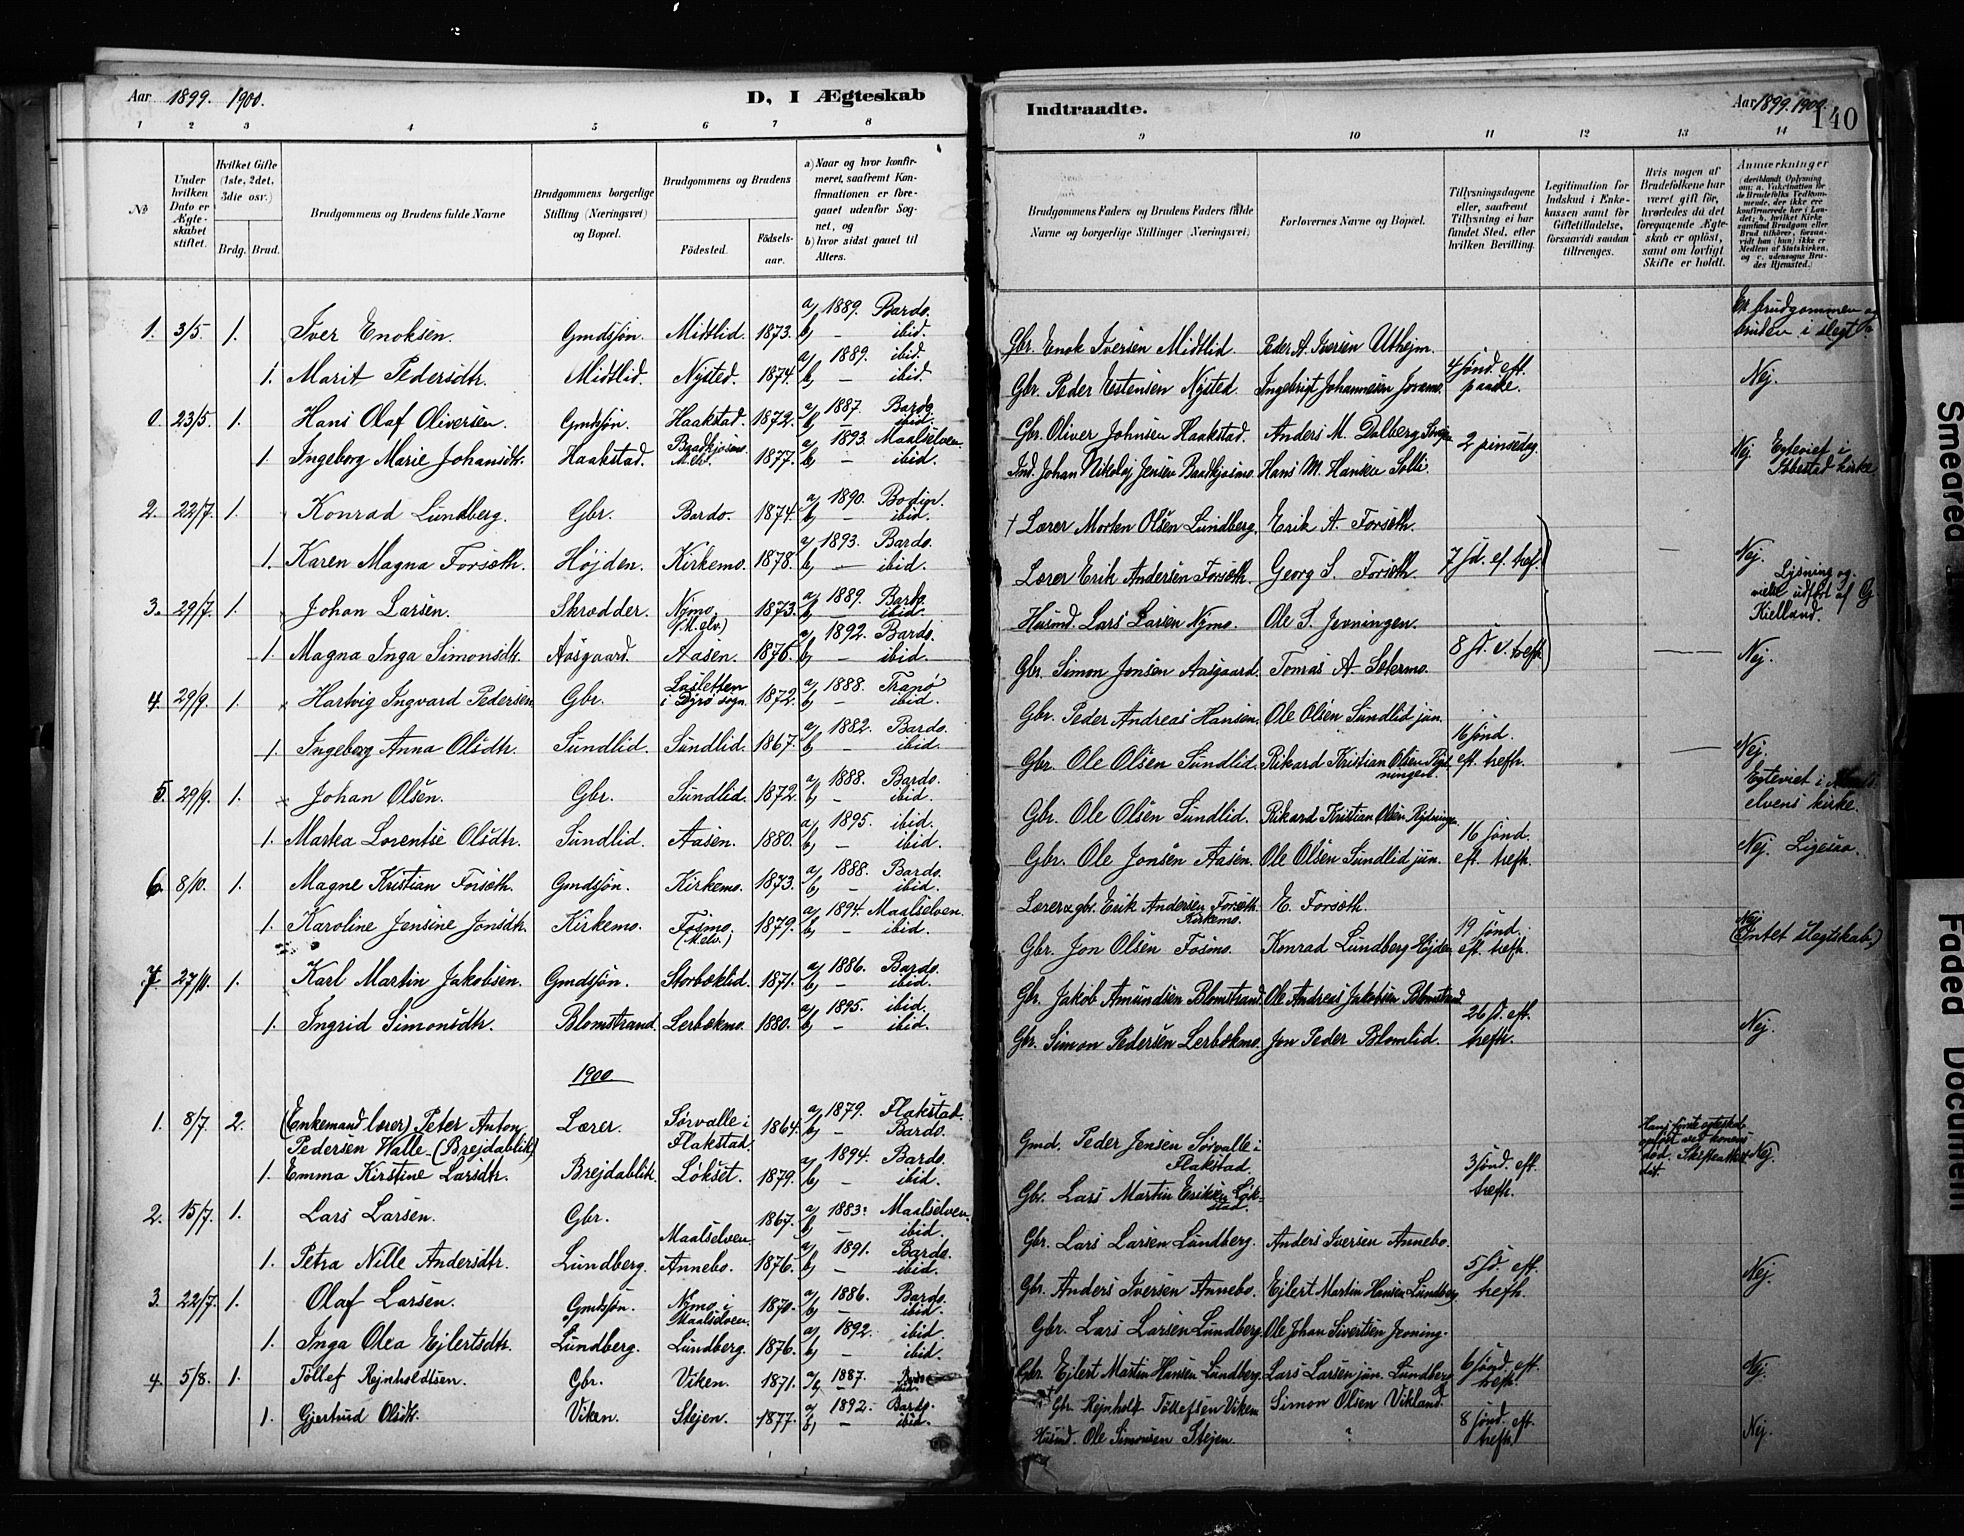 Aar 1899. 1900.
D, I Ægteskab
1 2 3 4 5 6 7 8
№
Under hvilken Dato er Ægteskabet stiftet.
Hvilket Gifte (1ste, 2det, 3die osv.)
Brdg. Brud.
Brudgommens og Brudens fulde Navne
Brudgommens borgerlige Stilling (Næringsvei) og Bopæl.
Brudgommens og Brudens
Fødested. Fødselsaar.
a) Naar og hvor konfirmeret, saafremt Konfirmationen er foregaaet udenfor Sognet, og
b) hvor sidst gaaet til Alters.
1. 3/5. 1. Iver Enoksen. Gmdsjøn. Midtlid. 1873. a) 1889. Bardo. b) — ibid.
1. Marit Pedersdtr. Midtlid. Nysted. 1874. a) 1889. ibid. b) — ibid.
0. 23/5. 1. Hans Olaf Oliversen. Gmdsjøn. Haakstad. 1872. a) 1887. Bardo. b) — ibid.
1. Ingeborg Marie Johansdtr. Haakstad. M.elv. 1877. a) 1893. Maalselven. b) — ibid.
2. 22/7. 1. Konrad Lundberg. Gbr. Bardo. 1874. a) 1890. Bodin. b) — ibid.
1. Karen Magna Forseth. Højden. Kirkemo. 1878. a) 1893. Bardo. b) — ibid.
3. 29/7. 1. Johan Larsen. Skrædder. Nymo (M.elv.) 1873. a) 1889. Bardo. b) — ibid.
1. Magna Inga Simonsdtr. Aasgaard. Aasen. 1876. a) 1892. Bardo. b) — ibid.
4. 29/9. 1. Hartvig Ingvard Pedersen. Gbr. i Dyrø sogn. 1872. a) 1888. Tranø b) — ibid.
1. Ingeborg Anna Olsdtr. Sundlid. Sundlid. 1867. a) 1882. Bardo. b) — ibid.
5. 29/9. 1. Johan Olsen. Gbr. Sundlid. 1872. a) 1888. Bardo. b) — ibid.
1. Martea Lorentse Olsdtr. Sundlid. Aasen. 1880. a) 1895. ibid. b) ibid.
6. 8/10. 1. Magne Kristian Forseth. Gmdsjøn. Kirkemo. 1873. a) 1888. Bardo. b) — ibid.
1. Karoline Jensine Jonsdtr. Kirkemo. Fosmo. (M.elv.) 1879. a) 1894. Maalselven. b) — ibid.
7. 27/11. 1. Karl Martin Jakobsen. Gmdsjøn. Storbæklid. 1871. a) 1886. Bardo. b) — ibid.
1. Ingrid Simonsdtr. Blomstrand. Lerbækmo. 1880. a) 1895. ibid. b) — ibid.
1900.
1. 8/7. 2. (Enkemand lærer) Peter Anton Pedersen Walle (Brejdablik) Lærer. Sørvalle i Flakstad. 1864. a) 1879. Flakstad. b) — Bardo.
1. Emma Kirstine Larsdtr. Brejdablik. Løkset. 1879. a) 1894. Bardo. b) — ibid.
2. 15/7. 1. Lars Larsen. Gbr. Maalselven. 1867. a) 1883. Maalselven. b) — ibid.
1. Petra Nille Andersdtr. Lundberg. Annebo. 1876. a) 1891. Bardo. b) — ibid.
3. 22/7. 1. Olaf Larsen. Gmdsjøn. Nymo i Maalselven. 1870. a) 1886. Bardo. b) — ibid.
1. Inga Olea Ejlertsdtr. Lundberg. Lundberg. 1876. a) 1892. ibid. b) — ibid.
4. 5/8. 1. Tollef Rejnholdtsen. Gbr. Viken. 1871. a) 1887. b) —
1. Gjertrud Olsdtr. Viken. Stejen. 1877. a) 1892. Bardo. b) — ibid.
Indtraadte.
Aar 1899. 1900.
140
9 10 11 12 13 14
Brudgommens Faders og Brudens Faders fulde Navne og borgerlige Stillinger (Næringsvei)
Forlovernes Navne og Bopæl.
Tillysningsdagene eller, saafremt Tillysning ei har fundet Sted, efter hvilken Bevilling.
Legitimation for Indskud i Enkekassen samt for Giftetilladelse, forsaavidt saadan tiltrænges.
Hvis nogen af Brudefolkene har været gift før, hvorledes da det foregaaende Ægteskab er opløst, samt om lovligt Skifte er holdt.
Anmærkninger
(deriblandt Oplysning om: a. Vaccination for de Brudefolks Vedkommende, der ikke ere konfirmerede her i Landet; b. hvilket Kirkesamfund Brudgom eller Brud tilhører, forsaavidt han (hun) ikke er Medlem af Statskirken, og c. udensogns Brudes Hjemsted.)
Er brudgommen og bruden i slegt?
Gbr. Enok Iversen Midtlid. Peder A. Iversen Uthejm.
Gbr. Peder Estensen Nysted. Ingebrigt Johannesen 4 sønd. eft. paaske. Nej.
Gbr. Oliver Johnsen Haakstad. Anders M. Dalberg 2 pinsedag
Ind. Johan Nikolaj Jensen Hans M. Hansen Solli. Nej. Egteviet i kirke
† Lærer Morten Olsen Lundberg. Erik A. Forseth.
Lærer Erik Andersen Forseth. Georg S. Forseth. 7 sd. ef. tref. — Nej.
Husmd. Lars Larsen Nymo. Ole S. Jevningen. Lysning og vielse udført af G. Kielland.
Gbr. Simon Jonsen Aasgaard. Tomas A. Setermo. 8 sd. e. treft. — Nej.
Gbr. Peder Andreas Hansen. Ole Olsen Sundlid jun.
Gbr. Ole Olsen Sundlid. Rikard Kristian Olsen 16 sønd. eft. trefh. — Nej.
Gbr. Ole Olsen Sundlid. Rikard Kristian Olsen Egteviet i elvens kirke.
Gbr. Ole Jonsen Aasen. Ole Olsen Sundlid jun. 16 sønd. eft. trefh. Nej. Ligesaa.
Lærer & gbr. Erik Andersen Forseth Kirkemo. E. Forseth.
Gbr. Jon Olsen Fosmo. Konrad Lundberg Højden 19 sønd. eft. trefh. Nej (Intet slegtskab.)
Gbr. Jakob Amundsen Blomstrand. Ole Andreas Jakobsen Blomstrand
Gbr. Simon Pedersen Lerbækmo. Jon Peder Blomlid. 26 sd. eft. trefh. Nej.
Gmd. Peder Jensen Sørvalle i Flakstad. 3 sønd. eft. trefh. Nej.
Gbr. Lars Martin Eriksen
Gbr. Lars Larsen Lundberg. Anders Iversen Annebo.
Gbr. Anders Iversen Annebo. Ejlert Martin Hansen Lundberg 5 sd. eft. trefh. Nej.
Gbr. Lars Larsen Lundberg. Ole Johan Sivertsen
Gbr. Ejlert Martin Hansen Lundberg. Lars Larsen jun. Lundberg 6 sønd. eft. trefh. Nej.
Gbr. Rejnholt Tollefsen Viken Simon Olsen Vikland.
Husmd. Ole Simonsen Stejen. ? 8 sønd. eft. trefh. Nej.
Smeared
Faded Document